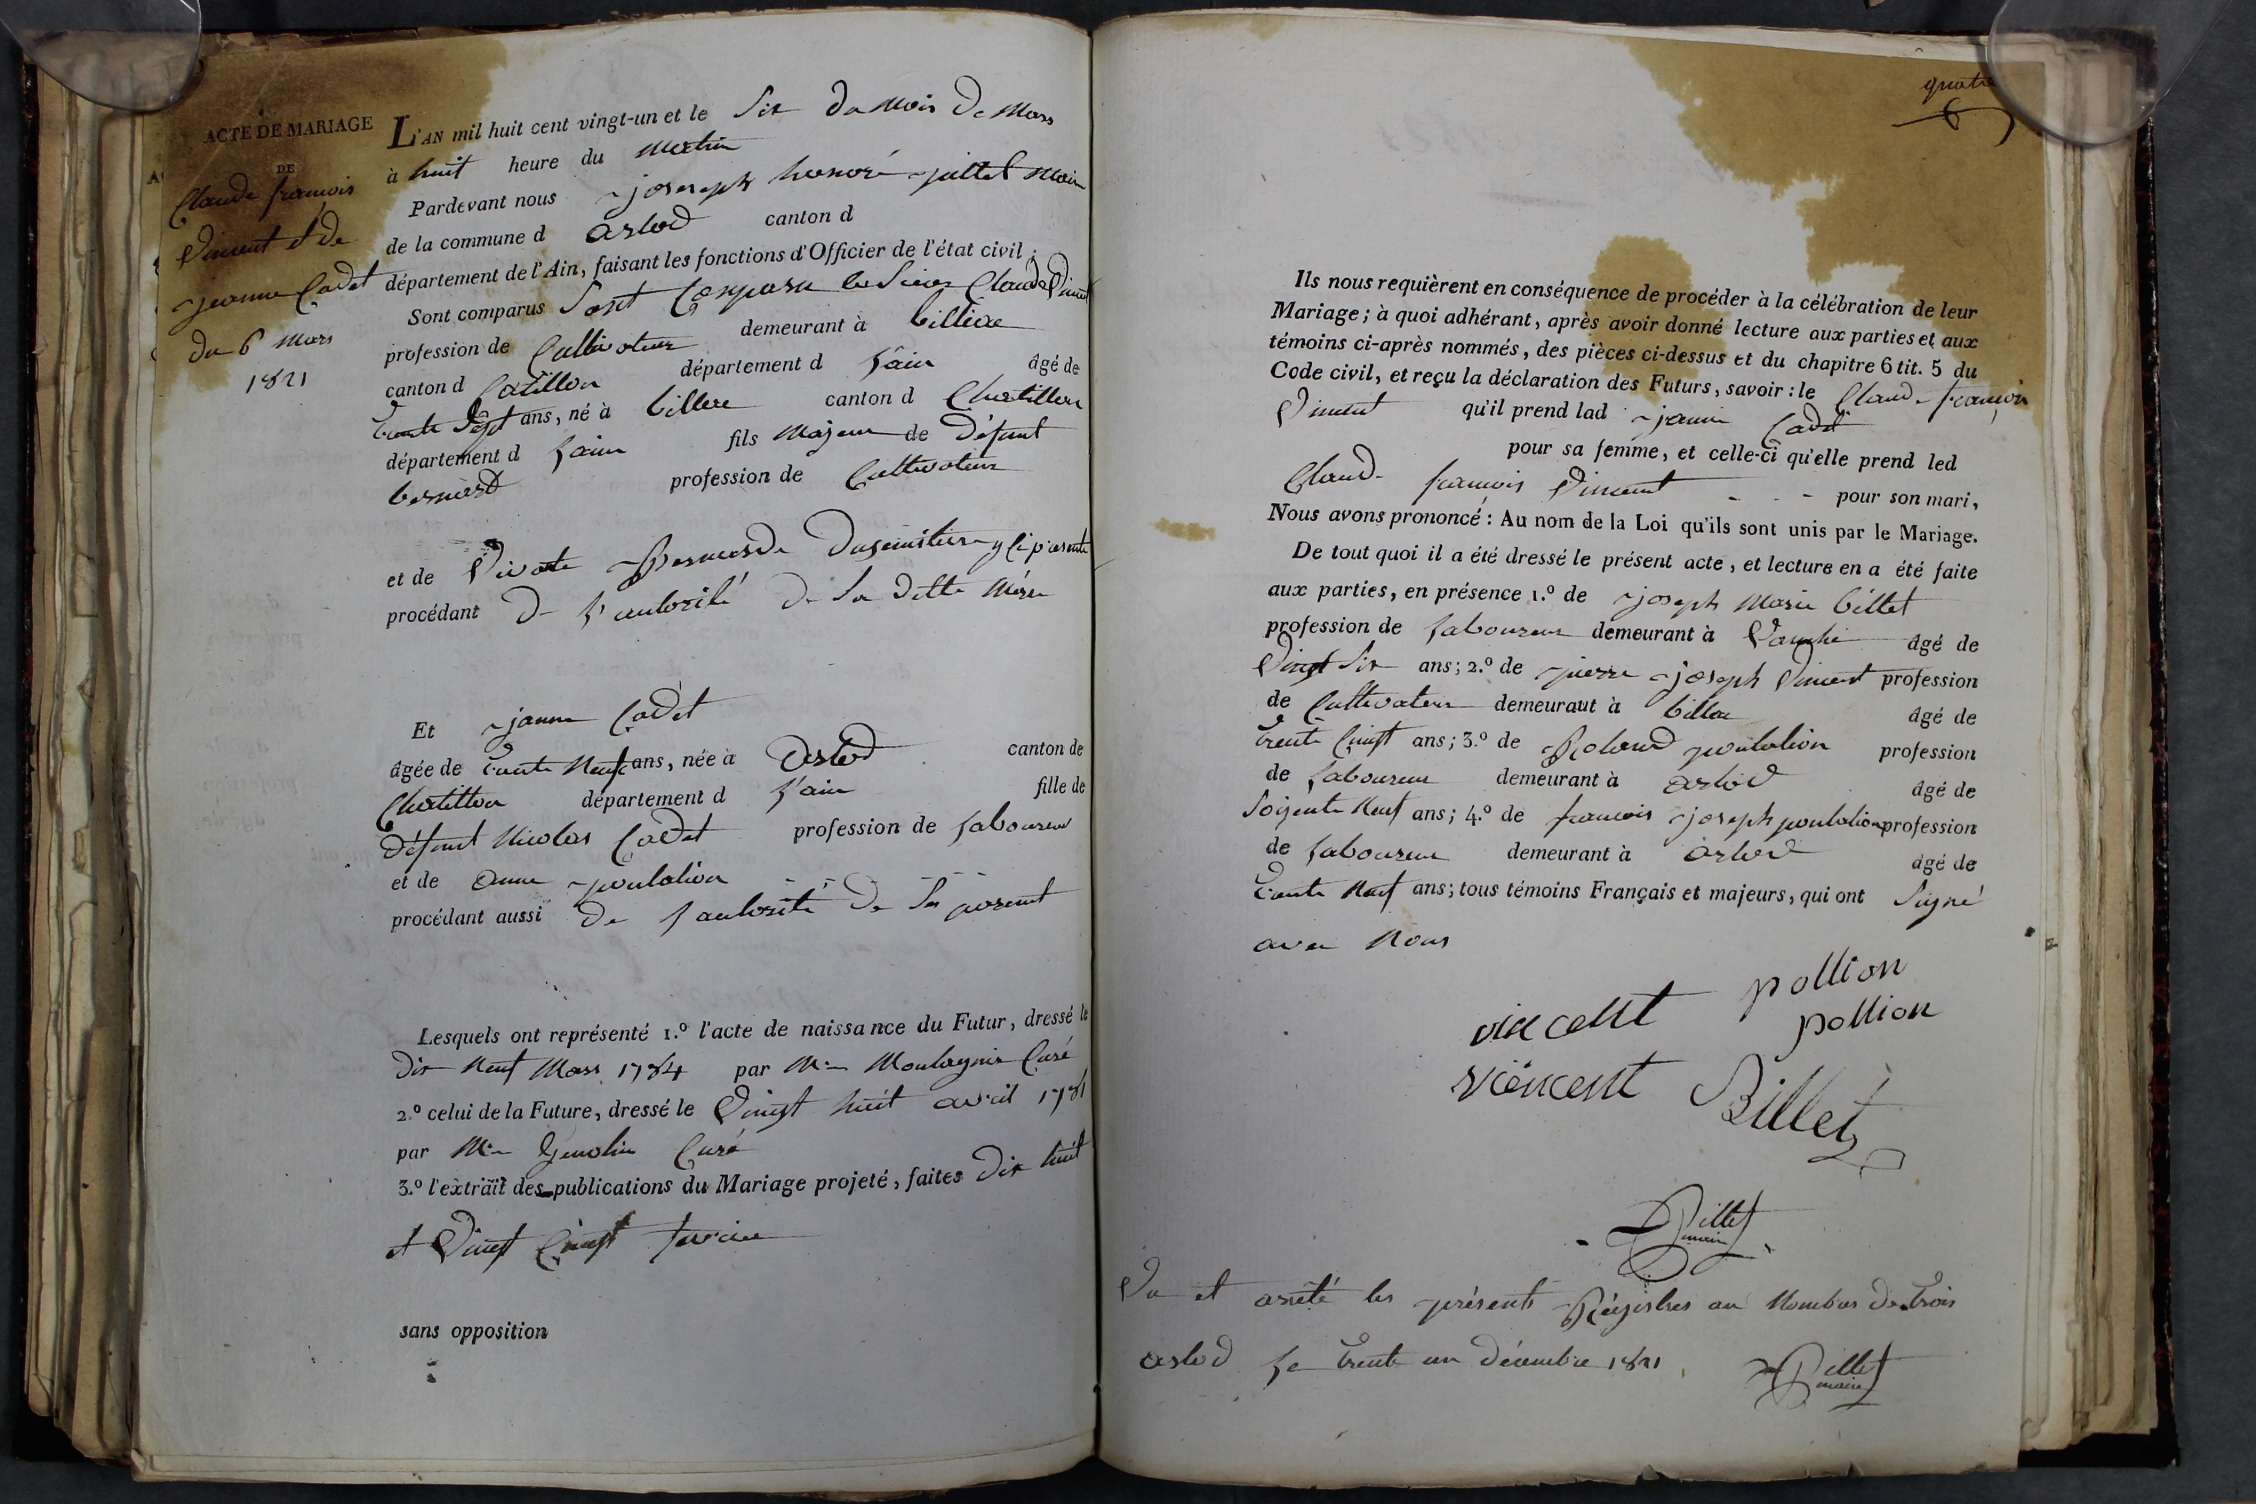 ACTE DE MARIAGE
DE
Claude françois
Vincent et de
jeanne Cadet
du 6 Mars
1821
L'AN mil huit cent vingt-un et le Six du Mois De Mars
à huit heure du Matin
Pardevant nous joseph honoré pillet Maire
de la commune d arlod canton d
département de l'Ain, faisant les fonctions d'Officier de l'état civil ;
Sont comparus Sont Comparu les Sieurs Claude Vincent
profession de Cultivateur demeurant à billiat
canton d Catillon département d l'ain âgé de
trente Sept ans, né à canton d Chatillon
département d l'ain fils Majeur de défunt
bernard profession de Cultivateur
et de present
procédant De l'autorité De Sa ditte Mère
Et janne Cadet
âgée de trente Neuf ans, née à arlod canton de
Chatillon département d l'ain fille de
défunt Nicolas Cadet profession de laboureur
et de anne
procédant aussi De l'autorité De Ses parent
Lesquels ont représenté 1.º l'acte de naissance du Futur, dressé le
dix Neuf Mars 1784 par Mr Curé
2.º celui de la Future, dressé le Vingt huit avril 1781
par Mr Curé
3.º l'extrait des publications du Mariage projeté, faites dix huit
et Vingt Cinqt fevrier
sans opposition
quatre
6
Ils nous requièrent en conséquence de procéder à la célébration de leur
Mariage ; à quoi adhérant, après avoir donné lecture aux parties et aux
témoins ci-après nommés, des pièces ci-dessus et du chapitre 6 tit. 5 du
Code civil, et reçu la déclaration des Futurs, savoir : le Claude françois
Vincent qu'il prend lad janne Cadet
pour sa femme, et celle-ci qu'elle prend led
Claude françois Vincent - - - pour son mari,
Nous avons prononcé : Au nom de la Loi qu'ils sont unis par le Mariage.
De tout quoi il a été dressé le présent acte, et lecture en a été faite
aux parties, en présence 1.º de joseph Marie billet
profession de laboureur demeurant à âgé de
Vingt Six ans ; 2.º de pierre joseph Vincent profession
de Cultivateur demeurant à âgé de
trente Cinqt ans ; 3.º de profession
de laboureur demeurant à arlod âgé de
Soixante Neuf ans ; 4.º de françois joseph profession
de laboureur demeurant à arlod âgé de
trente Neuf ans ; tous témoins Français et majeurs, qui ont Signé
avec Nous
vincent pollion
pollion
viencent Billet
Pillet
maire
Vu et areté les présents Régistres au Nombre de trois
arlod le trente un décembre 1821
Pillet
maire